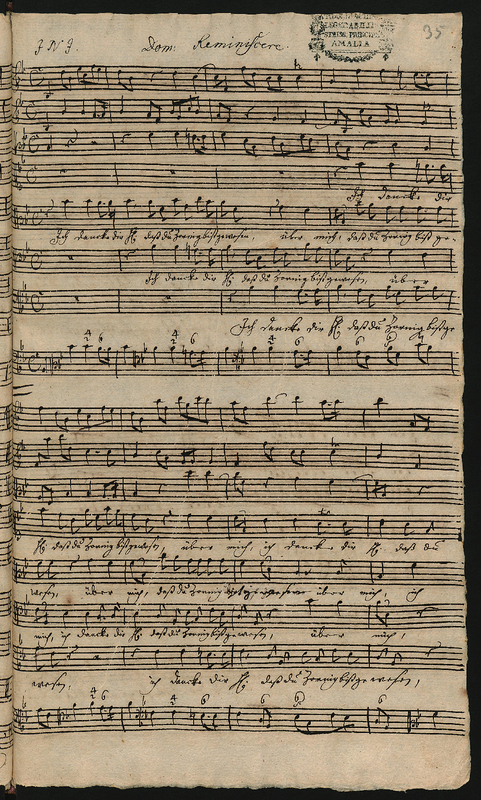 J N J. Dom: Reminiscere. 35
AMALIA
Ich dancke dir
Ich dancke dir H. daß du zornig bist gewesen, über mich, daß du zornig bist ge-
Ich dancke dir H. daß du zornig bist gewesen, über
Ich dancke dir H. daß du zornig bist ge
4 2 6 4 2 6 4 2 6 6 6
H. daß du zornig bist gewesen, über mich, ich dancke dir H. daß du
wesen, über mich, daß du zornig bist gewesen über mich, ich
mich, ich dancke dir H. daß du zornig bist gewesen, über mich,
wesen, ich dancke dir H. daß du zornig bist gewesen,
4 2 6 4 2 6 6 6